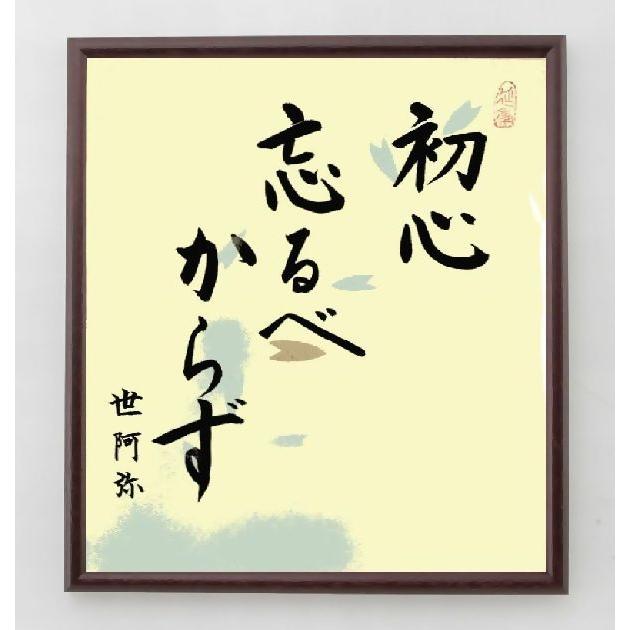 初心
忘るべ
からず
世阿弥